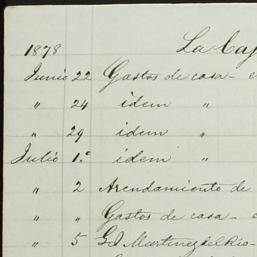 La Caj
1878
Junio 22 Gastos de casa -
" 24 idem "
" 29 idem "
Julio 1.º idem "
" 2 Arendamiento de
" " Gastos de casa -
" 5 G. J. Martinez del Rio -